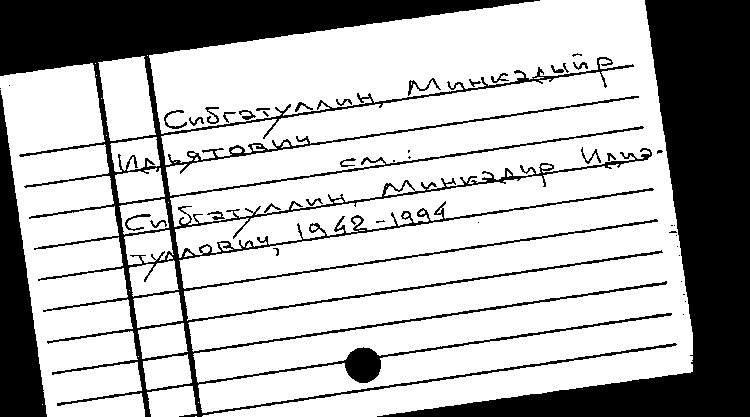 Сибгатуллин, Минкадыйр
Идъятович
см.:
Сибгатуллин, Минкадир Идиа-
туллович, 1942-1994